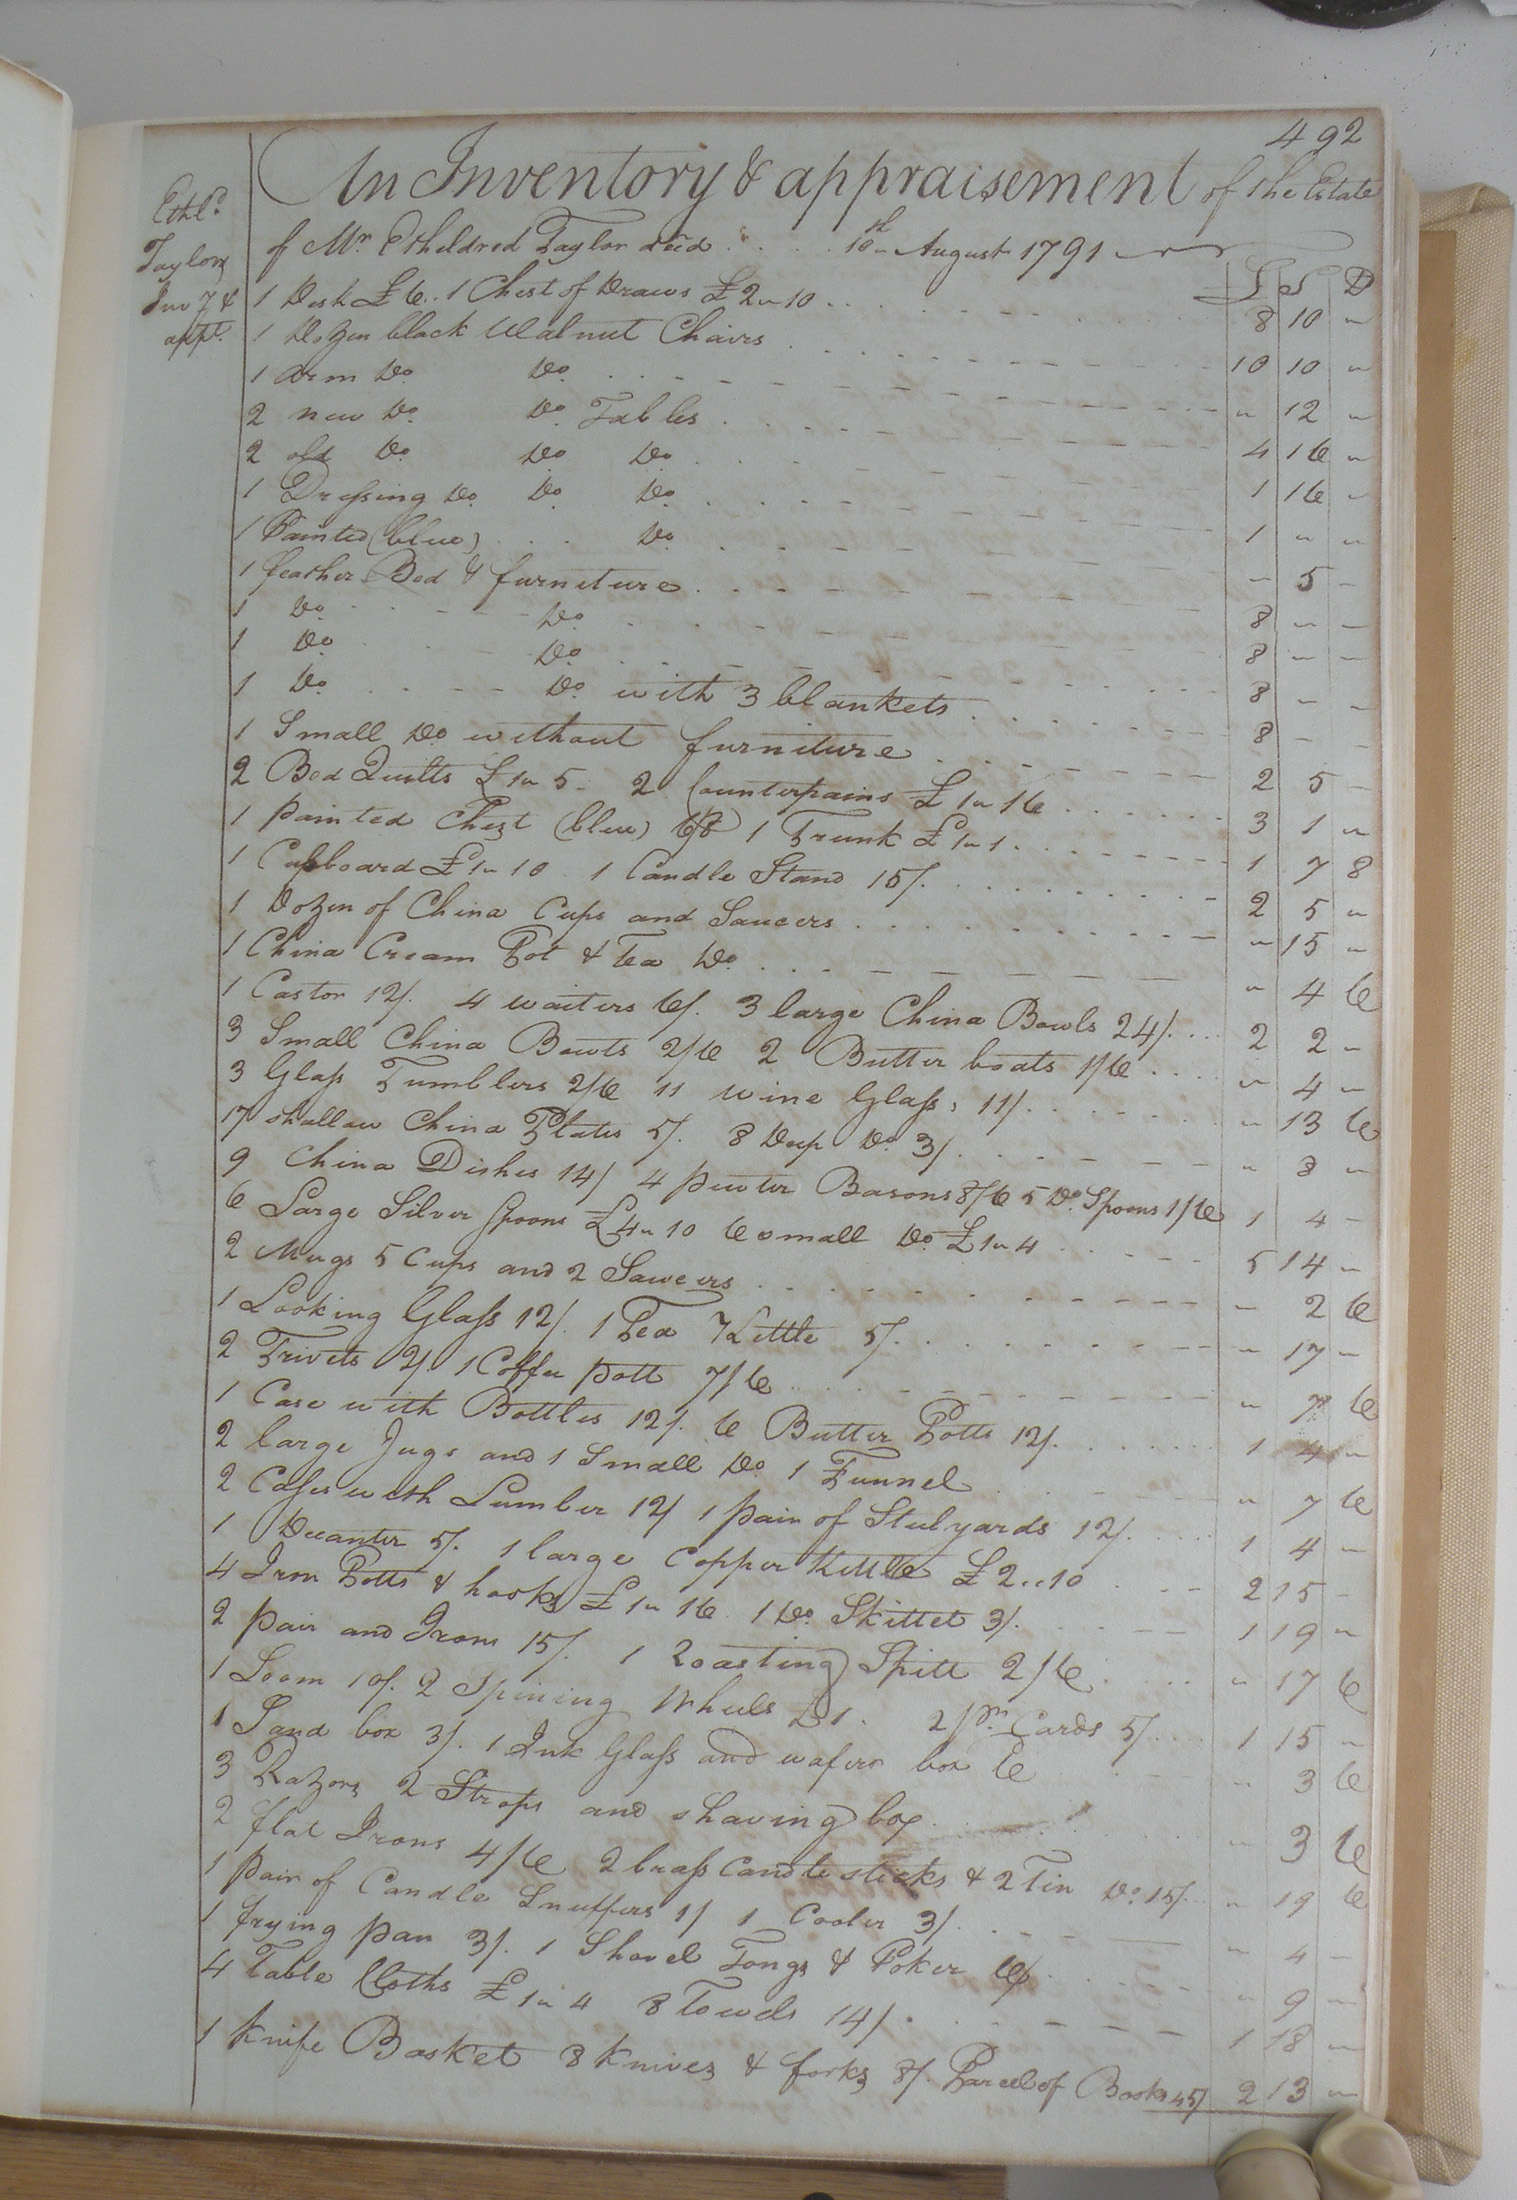 492
Ethl.d
Taylors
Inv.y &
app.t
An Inventory & appraisement of the Estate
of Mr Etheldred Taylor decd 10th August 1791
£ S D
1 Desk £6.. 1 Chest of Draws £2 „ 10 8 10 „
1 Dozen black Walnut Chairs 10 10 „
1 arm Do Do „ 12 „
2 new Do Do Tables 4 16 „
2 old Do Do Do 1 16 „
1 Dressing Do Do Do 1 „ „
1 Painted (blue) Do - 5 -
1 feather Bed & furniture 8 - -
1 Do Do 8 - -
1 Do Do 8 - -
1 Do Do with 3 blankets 8 - -
1 Small Do without furniture 2 5 -
2 Bed Quilts £1 „ 5 - 2 Counterpains £1 „ 16 3 1 „
1 painted Chest (blue) 6/8 1 Trunk £1 „ 1 1 7 8
1 Cupboard £1 „ 10 1 Candle Stand 15/. 2 5 „
1 Dozen of China Cups and Saucers „ 15 „
1 China Cream Pot & Tea Do „ 4 6
1 Castor 12/. 4 waiters 6/. 3 large China Bowls 24/. 2 2 -
3 Small China Bowls 2/6 2 Butter boats 1/6 „ 4 -
3 Glass Tumblers 2/6 11 wine Glass, 11/. „ 13 6
17 shallow China Plates 5/. 8 Deep Do 3/. „ 8 „
9 China Dishes 14/ 4 pewter Basons 8/6 5 Do Spoons 1/6 1 4 -
6 Large Silver Spoons £4 „ 10 6 small Do £1 „ 4 5 14 „
2 Mugs 5 Cups and 2 Sawcers - 2 6
1 Looking Glass 12/. 1 Tea Kittle 5/. „ 17 -
2 Trivets 2/ 1 Coffee pott 7/6 „ 7 6
1 Case with Bottles 12/. 6 Butter Potts 12/. 1 4 „
2 large Jugs and 1 Small Do 1 Funnel „ 7 6
2 Cases with Lumber 12/ 1 pair of Stulyards 12/. 1 4 -
1 Decanter 5/. 1 large Copper Kittle £2..10 2 15 -
4 Iron Potts & hooks £1 „ 16 1 Do Skittet 3/. 1 19 „
2 pair and Irons 15/. 1 Roasting Spitt 2/6 „ 17 6
1 Loom 10/. 2 Spining Wheels £1. 2 pr Cards 5/. 1 15 „
1 Sand box 3/. 1 Ink Glass and wafers box 6 „ 3 6
3 Razors 2 Strops and shaving box „ 3 6
2 flat Irons 4/6 2 brass Candlesticks & 2 Tin Do 15/. „ 19 6
1 pair of Candle Snuffers 1/ 1 Cooler 3/. „ 4 -
1 frying pan 3/. 1 Shovel Tongs & Poker 6/. „ 9 -
4 Table Cloths £1 „ 4 8 Towels 14/. 1 18 „
1 Knife Basket 8 Knives & forks 8/. Parcel of Books 45/ 2 13 „